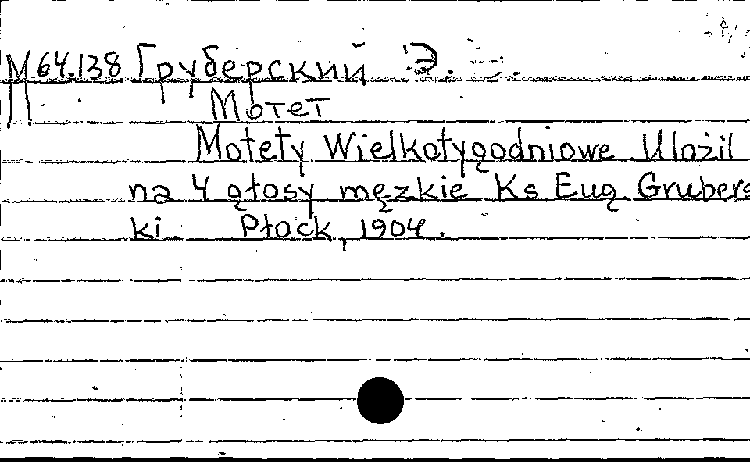 М 64.138 Груберский Э.
Мотет
Motety Wielkotygodniowe Ulożil
na 4 głosy męzkie Ks Eug Grubers
ki Płock, 1904.